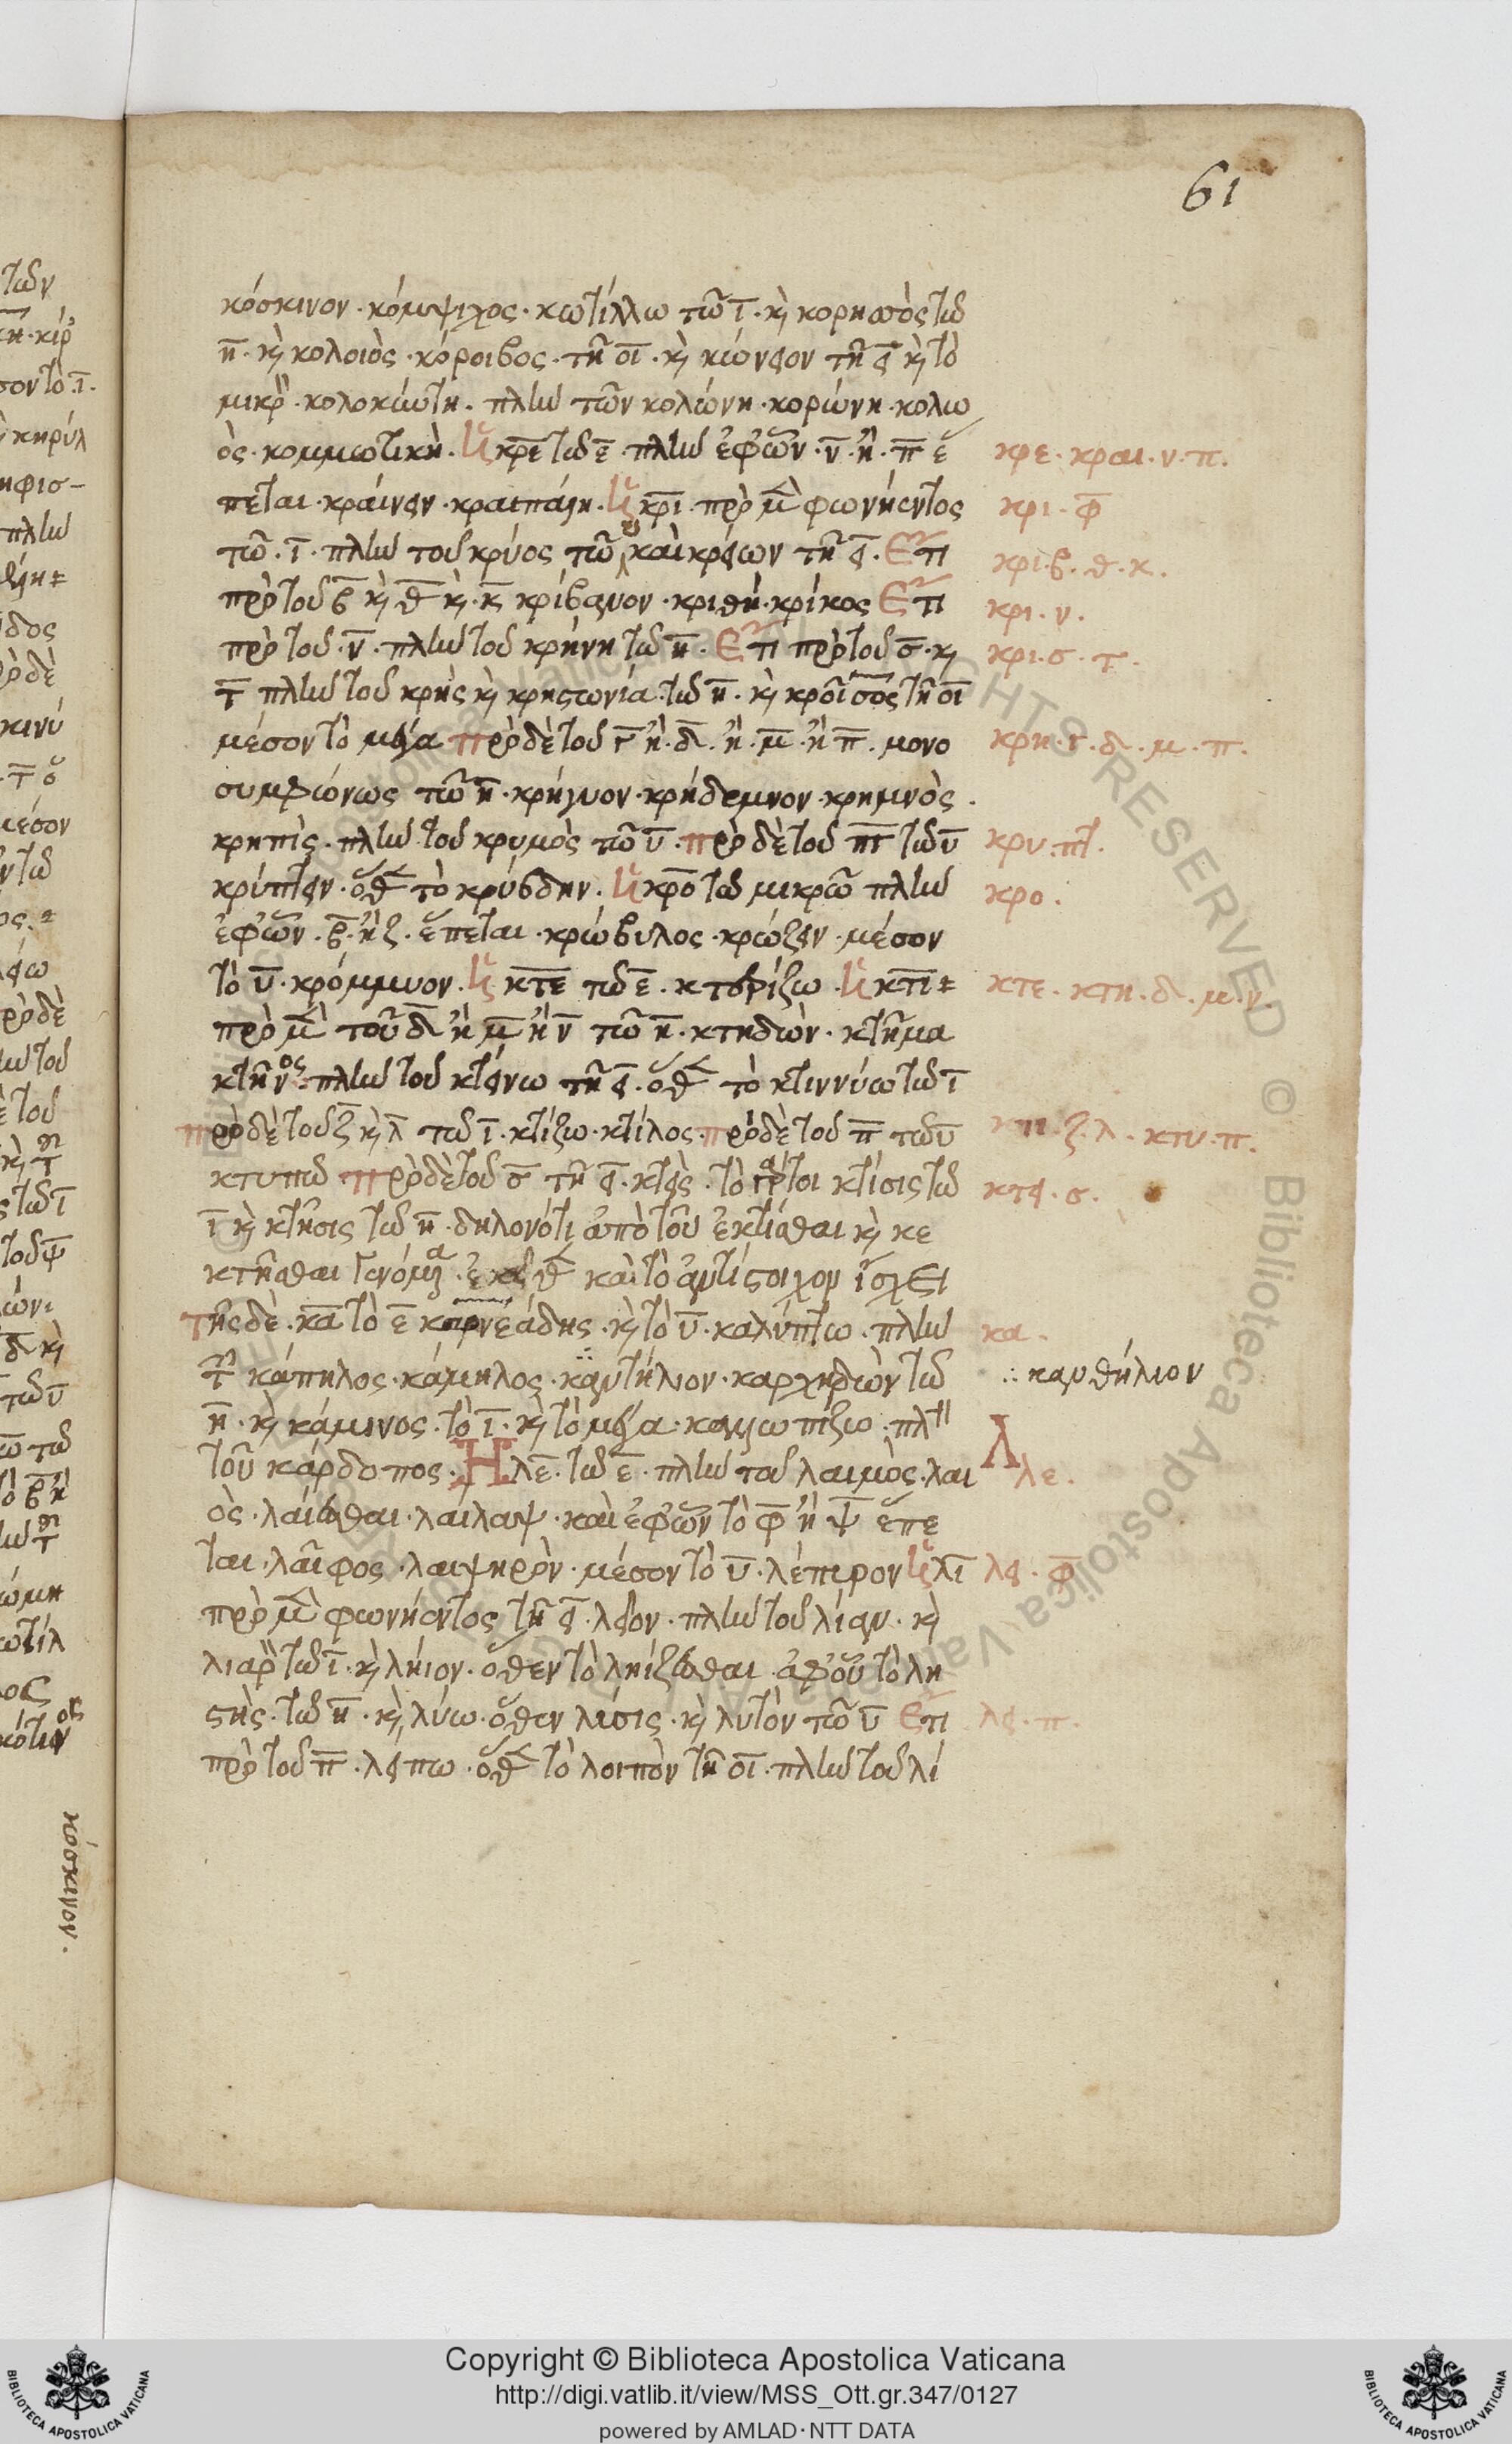 61
κόσκινον · κόμψιχος · κωτίλλω τῶ ῑ · κὴ κορησὸς τῶ
η̄ · κὴ κολοιὸς · κόροιβος · τῆ οῑ · κὴ κώνειον τῆ ει κὴ τὸ
μικρ · κολοκύντη · πλὴν τῶν κολώνη · κορώνη · κολω
ὸς · κομμωτικὴ · κρε τῶ ε̄ · πλὴν ἐφ' ὧν · ν̄ · ἢ · π̄ ἕ
πεται · κραίνειν · κραιπάλη · κρῑ · πρὸ μ φωνήεντος
τῶ · ῑ · πλὴν τοῦ κρύος τῶ υ καὶ κρείων τῆ ει · Ἔτι
πρὸ τοῦ β̄ κὴ θ̄ κὴ · κ̄ κρίβανον · κριθή · κρίκος Ἔτι
πρὸ τοῦ · ν̄ · πλὴν τοῦ κρήνη τῶ η̄ · Ἔτι πρὸ τοῦ σ̄ · κὴ
τ̄ πλὴν τοῦ κρὴς κὴ κρηστωνία τῶ η̄ · κὴ κροῖσος τῆ οῑ
μέσον τὸ μέγα πρὸ δὲ τοῦ γ̄ ἢ · δ̄ · ἢ · μ̄ · ἢ π̄ · μονο
συμφώνως τῶ η̄ · κρήγυον · κρήδεμνον · κρημνὸς ·
κρηπὶς · πλὴν τοῦ κρυμὸς τῶ ῡ · πρὸ δὲ τοῦ π̄τ̄ τῶ ῡ
κρύπτειν · ὅθ τὸ κρύβδην · κρο τῶ μικρῶ πλὴν
ἐφ' ὧν · β̄ · ἢ ζ · ἕπεται · κρώβυλος · κρώζειν · μέσον
τὸ ῡ · κρόμμυον · κτε τῶ ε̄ · κτερίζω · κτῑ
πρὸ μ τοῦ δ̄ ἢ μ̄ ἢ ν̄ τῶ η̄ · κτηδὼν · κτῆμα
κτῆνος πλὴν τοῦ κτείνω τῆ ει · ὅθ τὸ κτιννύω τῶ ῑ
πρὸ δὲ τοῦ ζ κὴ λ̄ τῶ ῑ · κτίζω · κτίλος · πρὸ δὲ τοῦ π̄ τῶ ῡ
κτυπῶ πρὸ δὲ τοῦ σ̄ τῆ ει · κτεὶς · τὸ τοι κτίσις τῶ
ῑ κὴ κτῆσις τῶ η̄ · δηλονότι ἀπὸ τοῦ ἐκτίσθαι κὴ κε
κτῆσθαι γενόμ · θ καὶ τὸ ἀντίστοιχον ἴσχει
τῆς δὲ · κα τὸ ε̄ καρνεάδης · κὴ τὸ ῡ · καλύπτω · πλὴν
τ κάπηλος · κάμηλος · καντήλιον · καρχηδὼν τῶ
η̄ · κὴ κάμινος · τὸ ῑ · κὴ τὸ μέγα · καλλωπίζω · πλη
τοῦ κάρδοπος · Η λε · τῶ ε̄ · πλὴν τοῦ λαιμὸς · λαι
ὸς · λαίεσθαι · λαίλαψ · καὶ ἐφ' ὧν τὸ φ̄ ἢ ψ̄ ἕπε
ται · λαῖφος · λαιψηρὸν · μέσον τὸ ῡ · λέπυρον λῑ
πρὸ μ φωνήεντος τῆ ει · λεῖον · πλὴν τοῦ λίαν · κὴ
λιαρ τῶ ῑ · κὴ λήιον · ὅθεν τὸ ληίζεσθαι · ἀφ' οὗ τὸ λη
στὴς · τῶ η̄ · κὴ λύω · ὅθεν λύσις · κὴ λυτὸν τῶ ῡ Ἔτι
πρὸ τοῦ π̄ · λείπω · ὅθ τὸ λοιπὸν τῆ οῑ · πλὴν τοῦ λί
κρε · κραι · ν · π ·
κρι · φ̄
κρι · β · θ · κ ·
κρι · ν ·
κρι · σ · τ ·
κρη · γ · δ · μ · π ·
κρυ · πτ ·
κρο ·
κτε · κτη · δ · μ · ν ·
κτι · ζ · λ · κτυ · π ·
κτει · σ ·
κα ·
∴ κανθήλιον
Λ
λε ·
λει · φ̄
λει · π ·
κόσκινον ·
Copyright © Biblioteca Apostolica Vaticana
http://digi.vatlib.it/view/MSS_Ott.gr.347/0127
powered by AMLAD · NTT DATA
BIBLIOTECA APOSTOLICA VATICANA
BIBLIOTECA APOSTOLICA VATICANA